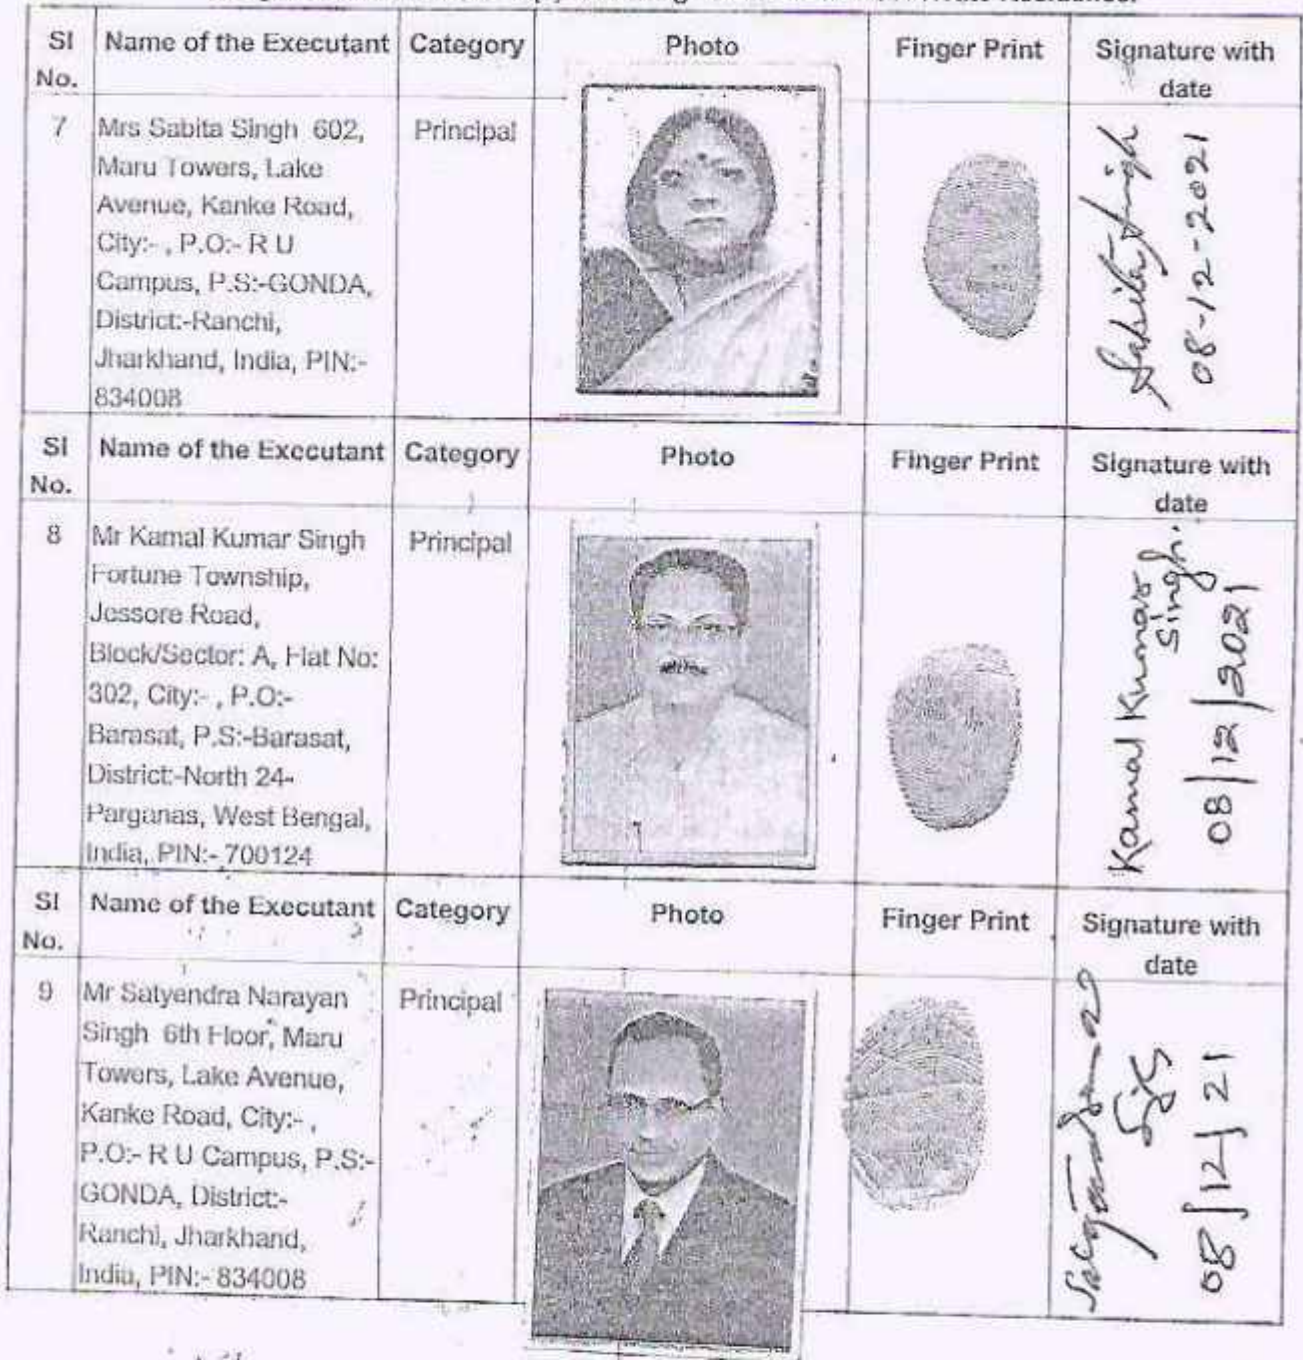 SI No. Name of the Executant Category Photo Finger Print Signature with date
7 Mrs Sabita Singh 602, Principal
Maru Towers, Lake
Avenue, Kanke Road,
City:- , P.O:- R U
Campus, P.S:-GONDA,
District:-Ranchi,
Jharkhand, India, PIN:-
834008
Sabita Singh
08-12-2021
SI No. Name of the Executant Category Photo Finger Print Signature with date
8 Mr Kamal Kumar Singh Principal
Fortune Township,
Jessore Road,
Block/Sector: A, Flat No:
302, City:- , P.O:-
Barasat, P.S:-Barasat,
District:-North 24-
Parganas, West Bengal,
India, PIN:- 700124
Kamal Kumar
Singh.
08/12/2021
SI No. Name of the Executant Category Photo Finger Print Signature with date
9 Mr Satyendra Narayan Principal
Singh 6th Floor, Maru
Towers, Lake Avenue,
Kanke Road, City:- ,
P.O:- R U Campus, P.S:-
GONDA, District:-
Ranchi, Jharkhand,
India, PIN:- 834008
08/12/21